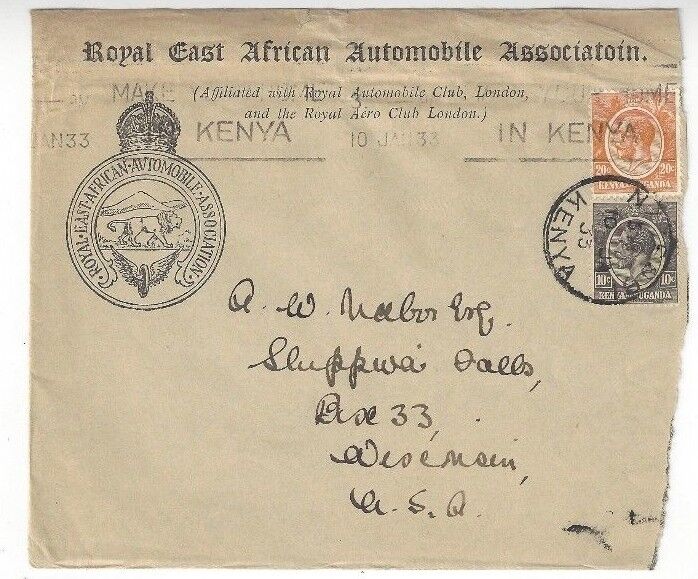 Royal East African Automobile Associatoin.
MAKE
(Affiliated with Royal Automobile Club, London,
and the Royal Aero Club London.)
JAN33
KENYA
10 JAN 33
IN KENYA
ROYAL·EAST·AFRICAN·AVTOMOBILE·ASSOCIATION
20c 20c
KENYA UGANDA
KENYA
10c 10c
KENYA UGANDA
A. W. Nabor Esq.
Sluppwa Falls,
Box 33,
Wisconsin,
U. S. A.